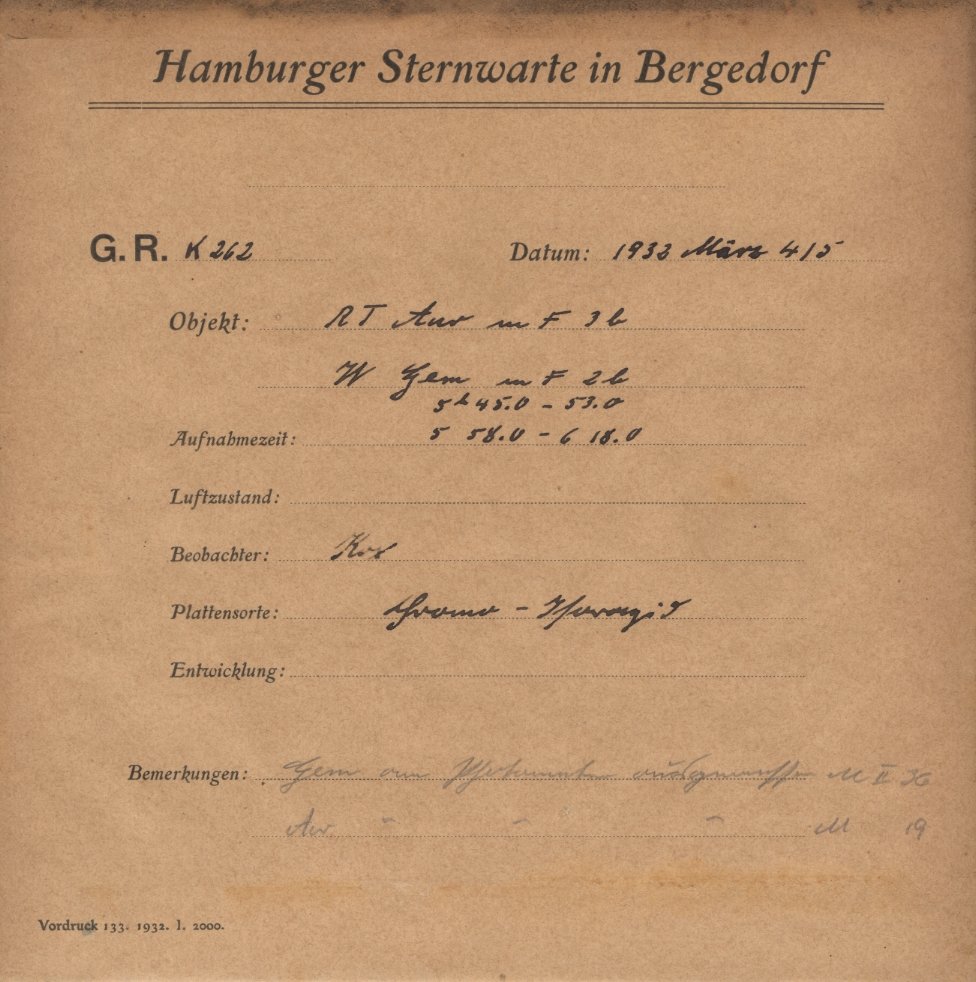 Hamburger Sternwarte in Bergedorf
G. R. K 262 Datum: 1933 März 4/5
Objekt: RT Aur m F 3 b
W Gem m F 2 b
5h 45.0 - 53.0
Aufnahmezeit: 5 58.0 - 6 18.0
Luftzustand:
Beobachter: Kox
Plattensorte: Chromo - Isorapid
Entwicklung:
Bemerkungen: Gem am Photometer ausgemessen M II
Aur " " " M 19
Vordruck 133. 1932. I. 2000.